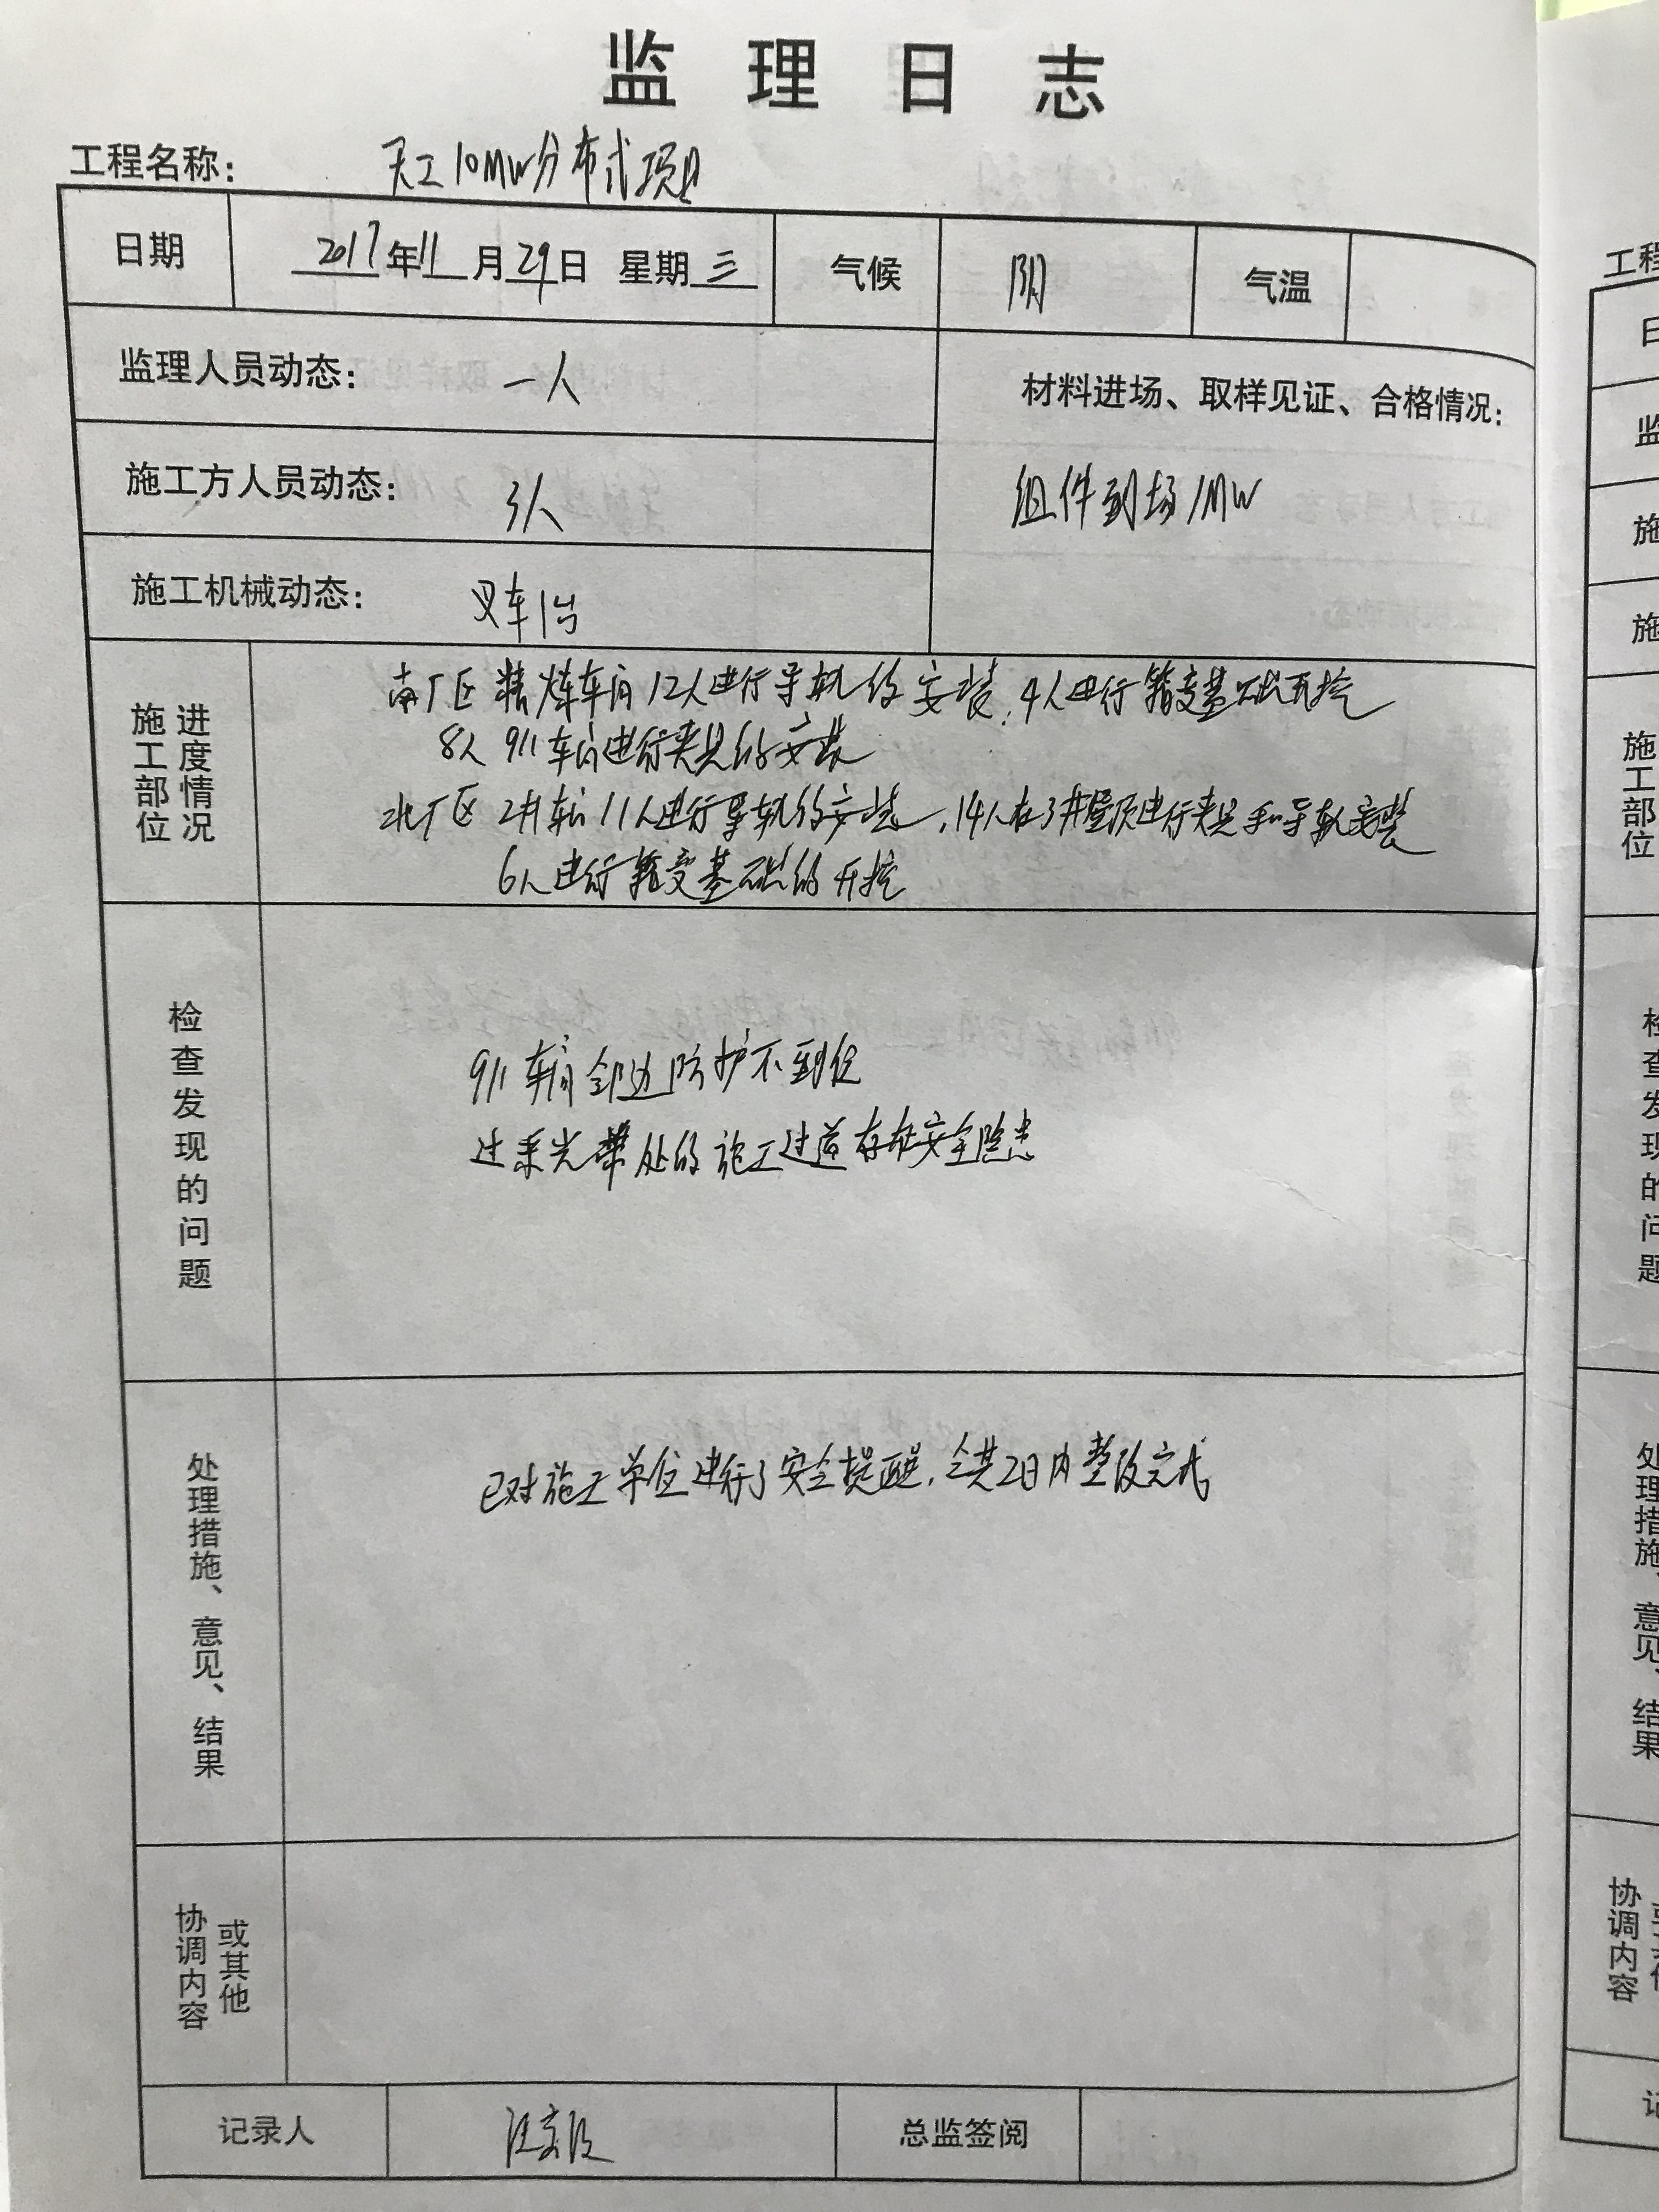 监理日志
工程名称： 天工10MW分布式项目
日期 2017年11月29日 星期三 气候 阴 气温
监理人员动态： 一人
材料进场、取样见证、合格情况：
施工方人员动态： 3人
组件到场1MW
施工机械动态： 叉车1台
施工部位 进度情况
南厂区 精炼车间12人进行导轨的安装，4人进行箱变基础开挖
8人 911车间进行夹具的安装
北厂区 2#车间11人进行导轨的安装，14人在3#屋顶进行夹具和导轨安装
6人进行箱变基础的开挖
检查发现的问题
911车间邻边防护不到位
过采光带处的施工过道存在安全隐患
处理措施、意见、结果
已对施工单位进行了安全提醒，令其2日内整改完成
协调内容 或其他
记录人 汪 总监签阅
工程
日
监
施
施
施工部位
检查发现的问题
处理措施、意见、结果
协调内容
记